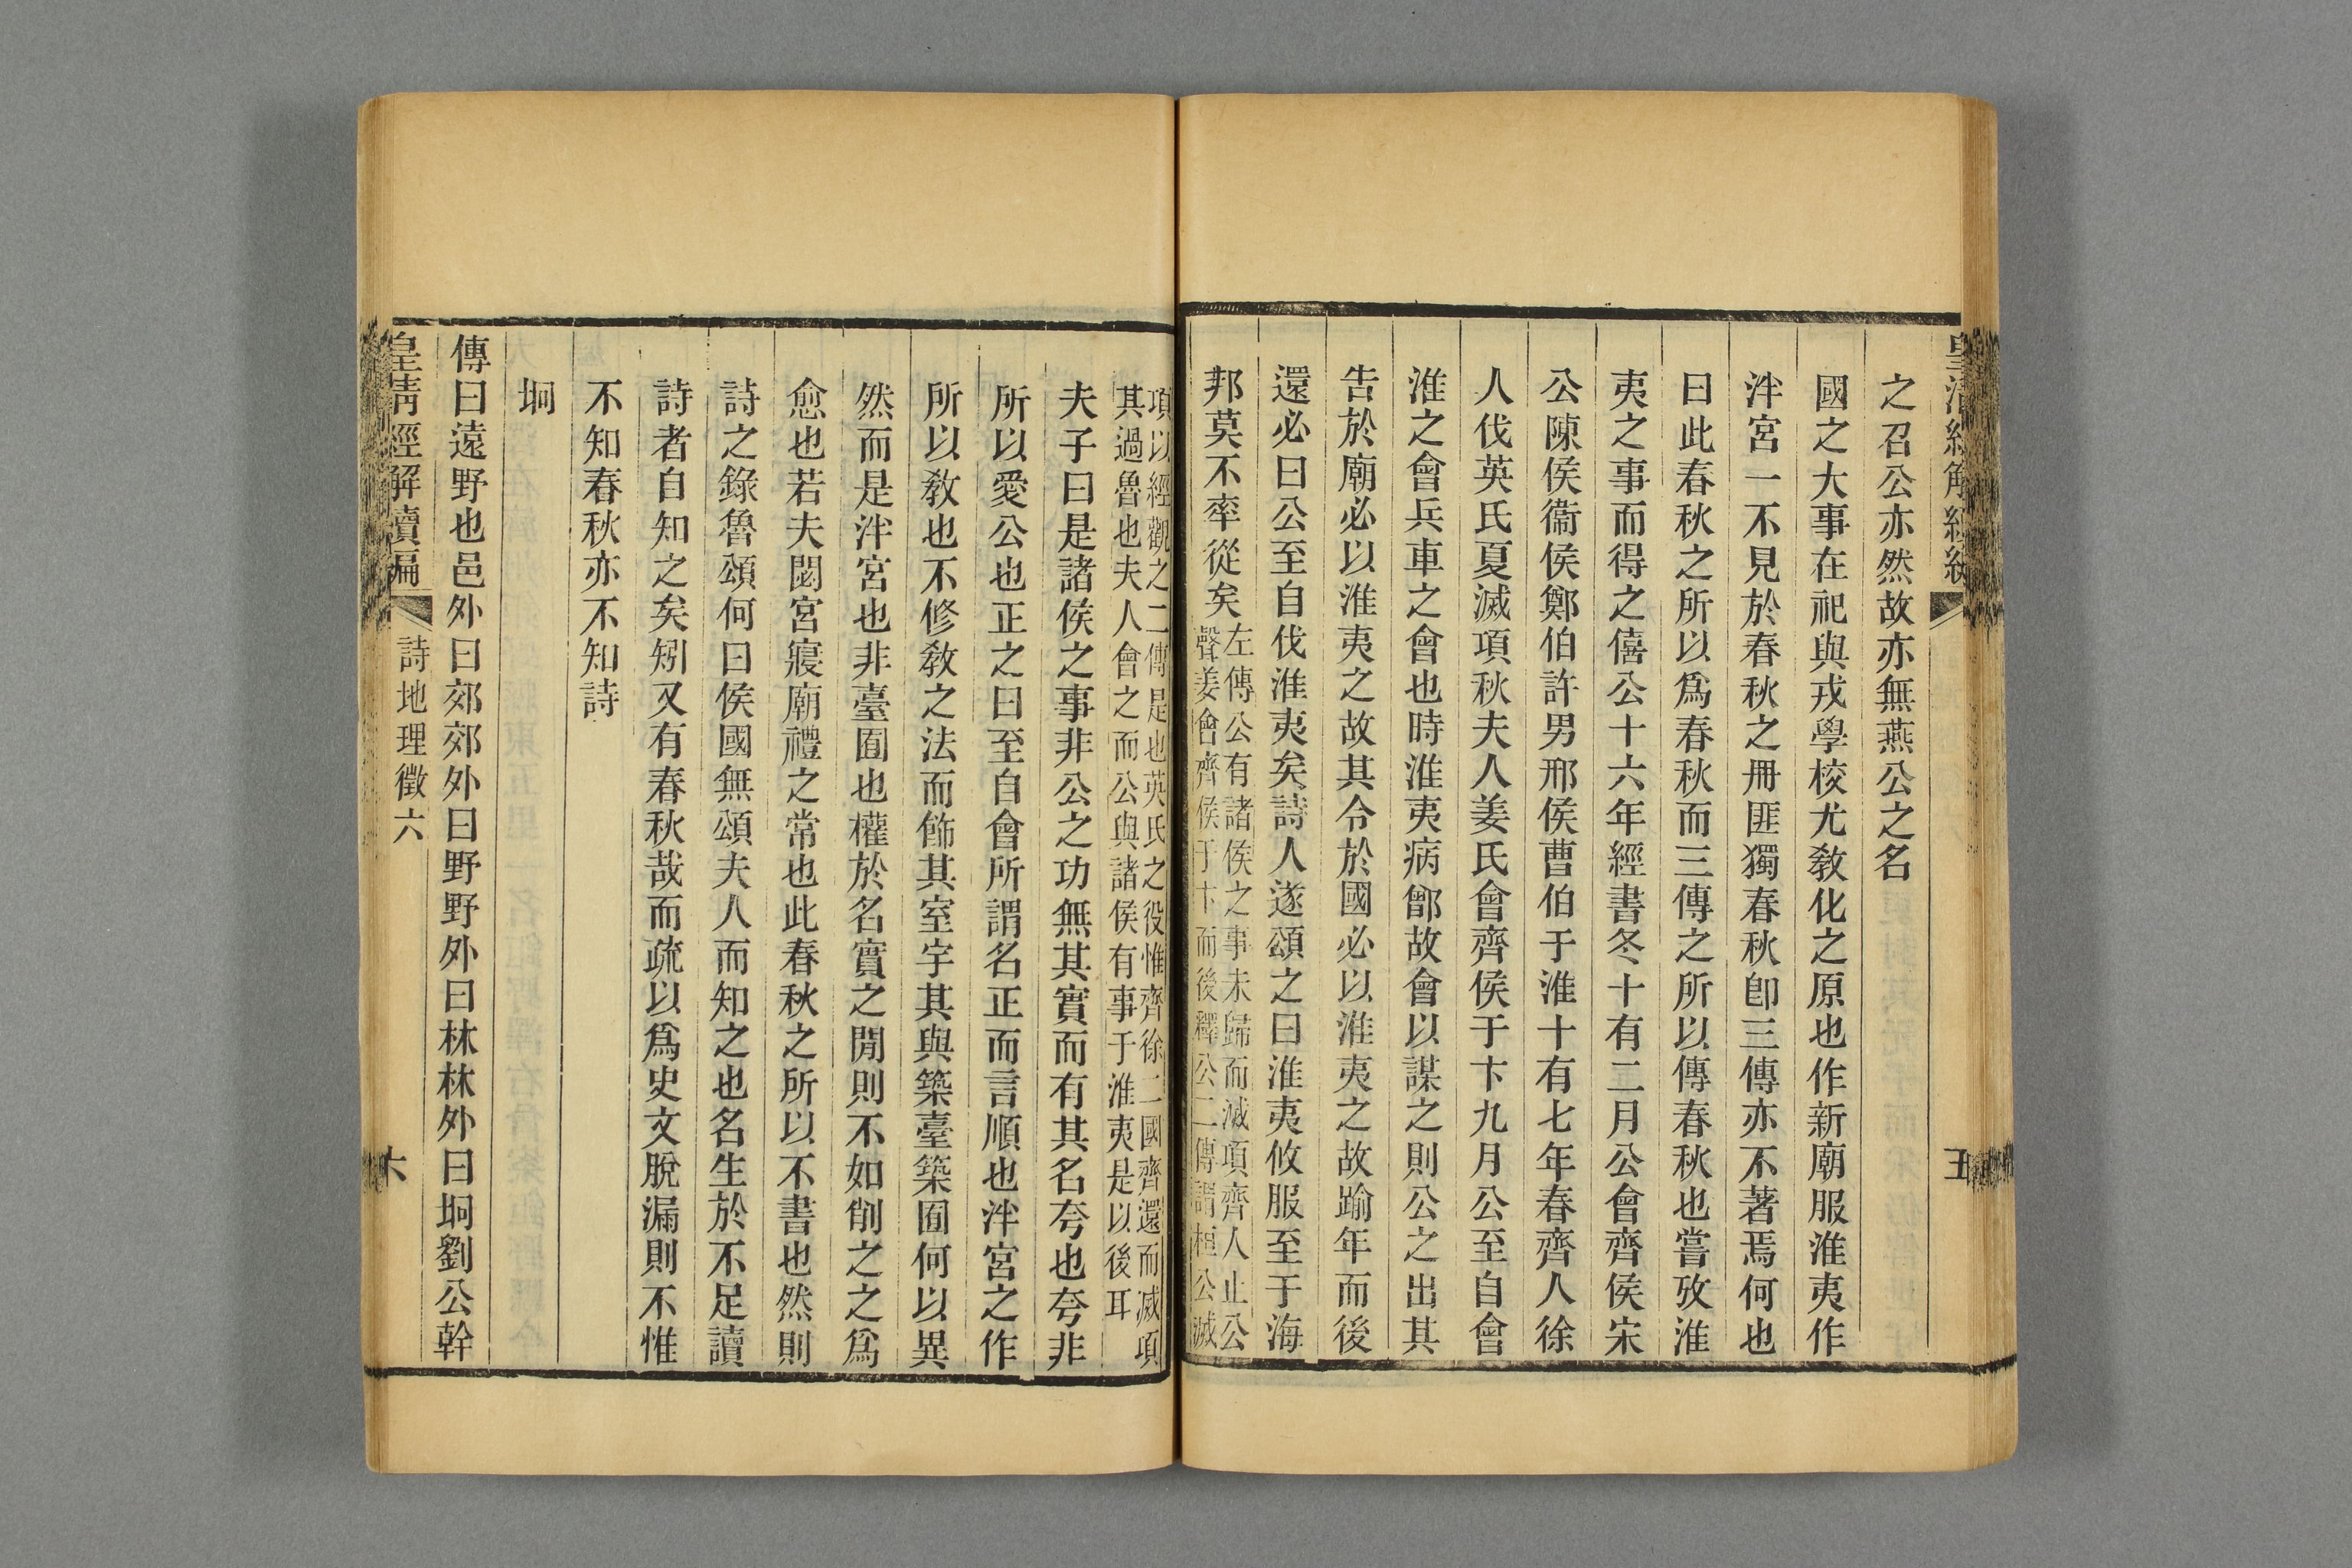 之召公亦然故亦無燕公之名
國之大事在祀與戎學校尤敎化之原也作新廟服淮夷作
泮宮一不見於春秋之冊匪獨春秋卽三傳亦不著焉何也
曰此春秋之所以爲春秋而三傳之所以傳春秋也嘗攷淮
夷之事而得之僖公十六年經書冬十有二月公會齊侯宋
公陳侯衞侯鄭伯許男邢侯曹伯于淮十有七年春齊人徐
人伐英氏夏滅項秋夫人姜氏會齊侯于卞九月公至自會
淮之會兵車之會也時淮夷病鄫故會以謀之則公之出其
告於廟必以淮夷之故其令於國必以淮夷之故踰年而後
還必曰公至自伐淮夷矣詩人遂頌之曰淮夷攸服至于海
邦莫不率從矣
左傳公有諸侯之事未歸而滅項齊人止公
聲姜會齊侯于卞而後釋公二傳謂桓公滅
項以經觀之二傳是也英氏之役惟齊徐二國齊還而滅項
其過魯也夫人會之而公與諸侯有事于淮夷是以後耳
夫子曰是諸侯之事非公之功無其實而有其名夸也夸非
所以愛公也正之曰至自會所謂名正而言順也泮宮之作
所以敎也不修敎之法而飾其室宇其與築臺築囿何以異
然而是泮宮也非臺囿也權於名實之閒則不如削之之爲
愈也若夫閟宮寢廟禮之常也此春秋之所以不書也然則
詩之錄魯頌何曰侯國無頌夫人而知之也名生於不足讀
詩者自知之矣矧又有春秋哉而疏以爲史文脫漏則不惟
不知春秋亦不知詩
坰
傳曰遠野也邑外曰郊郊外曰野野外曰林林外曰坰劉公幹
皇淸經解續編
詩地理徵六
六